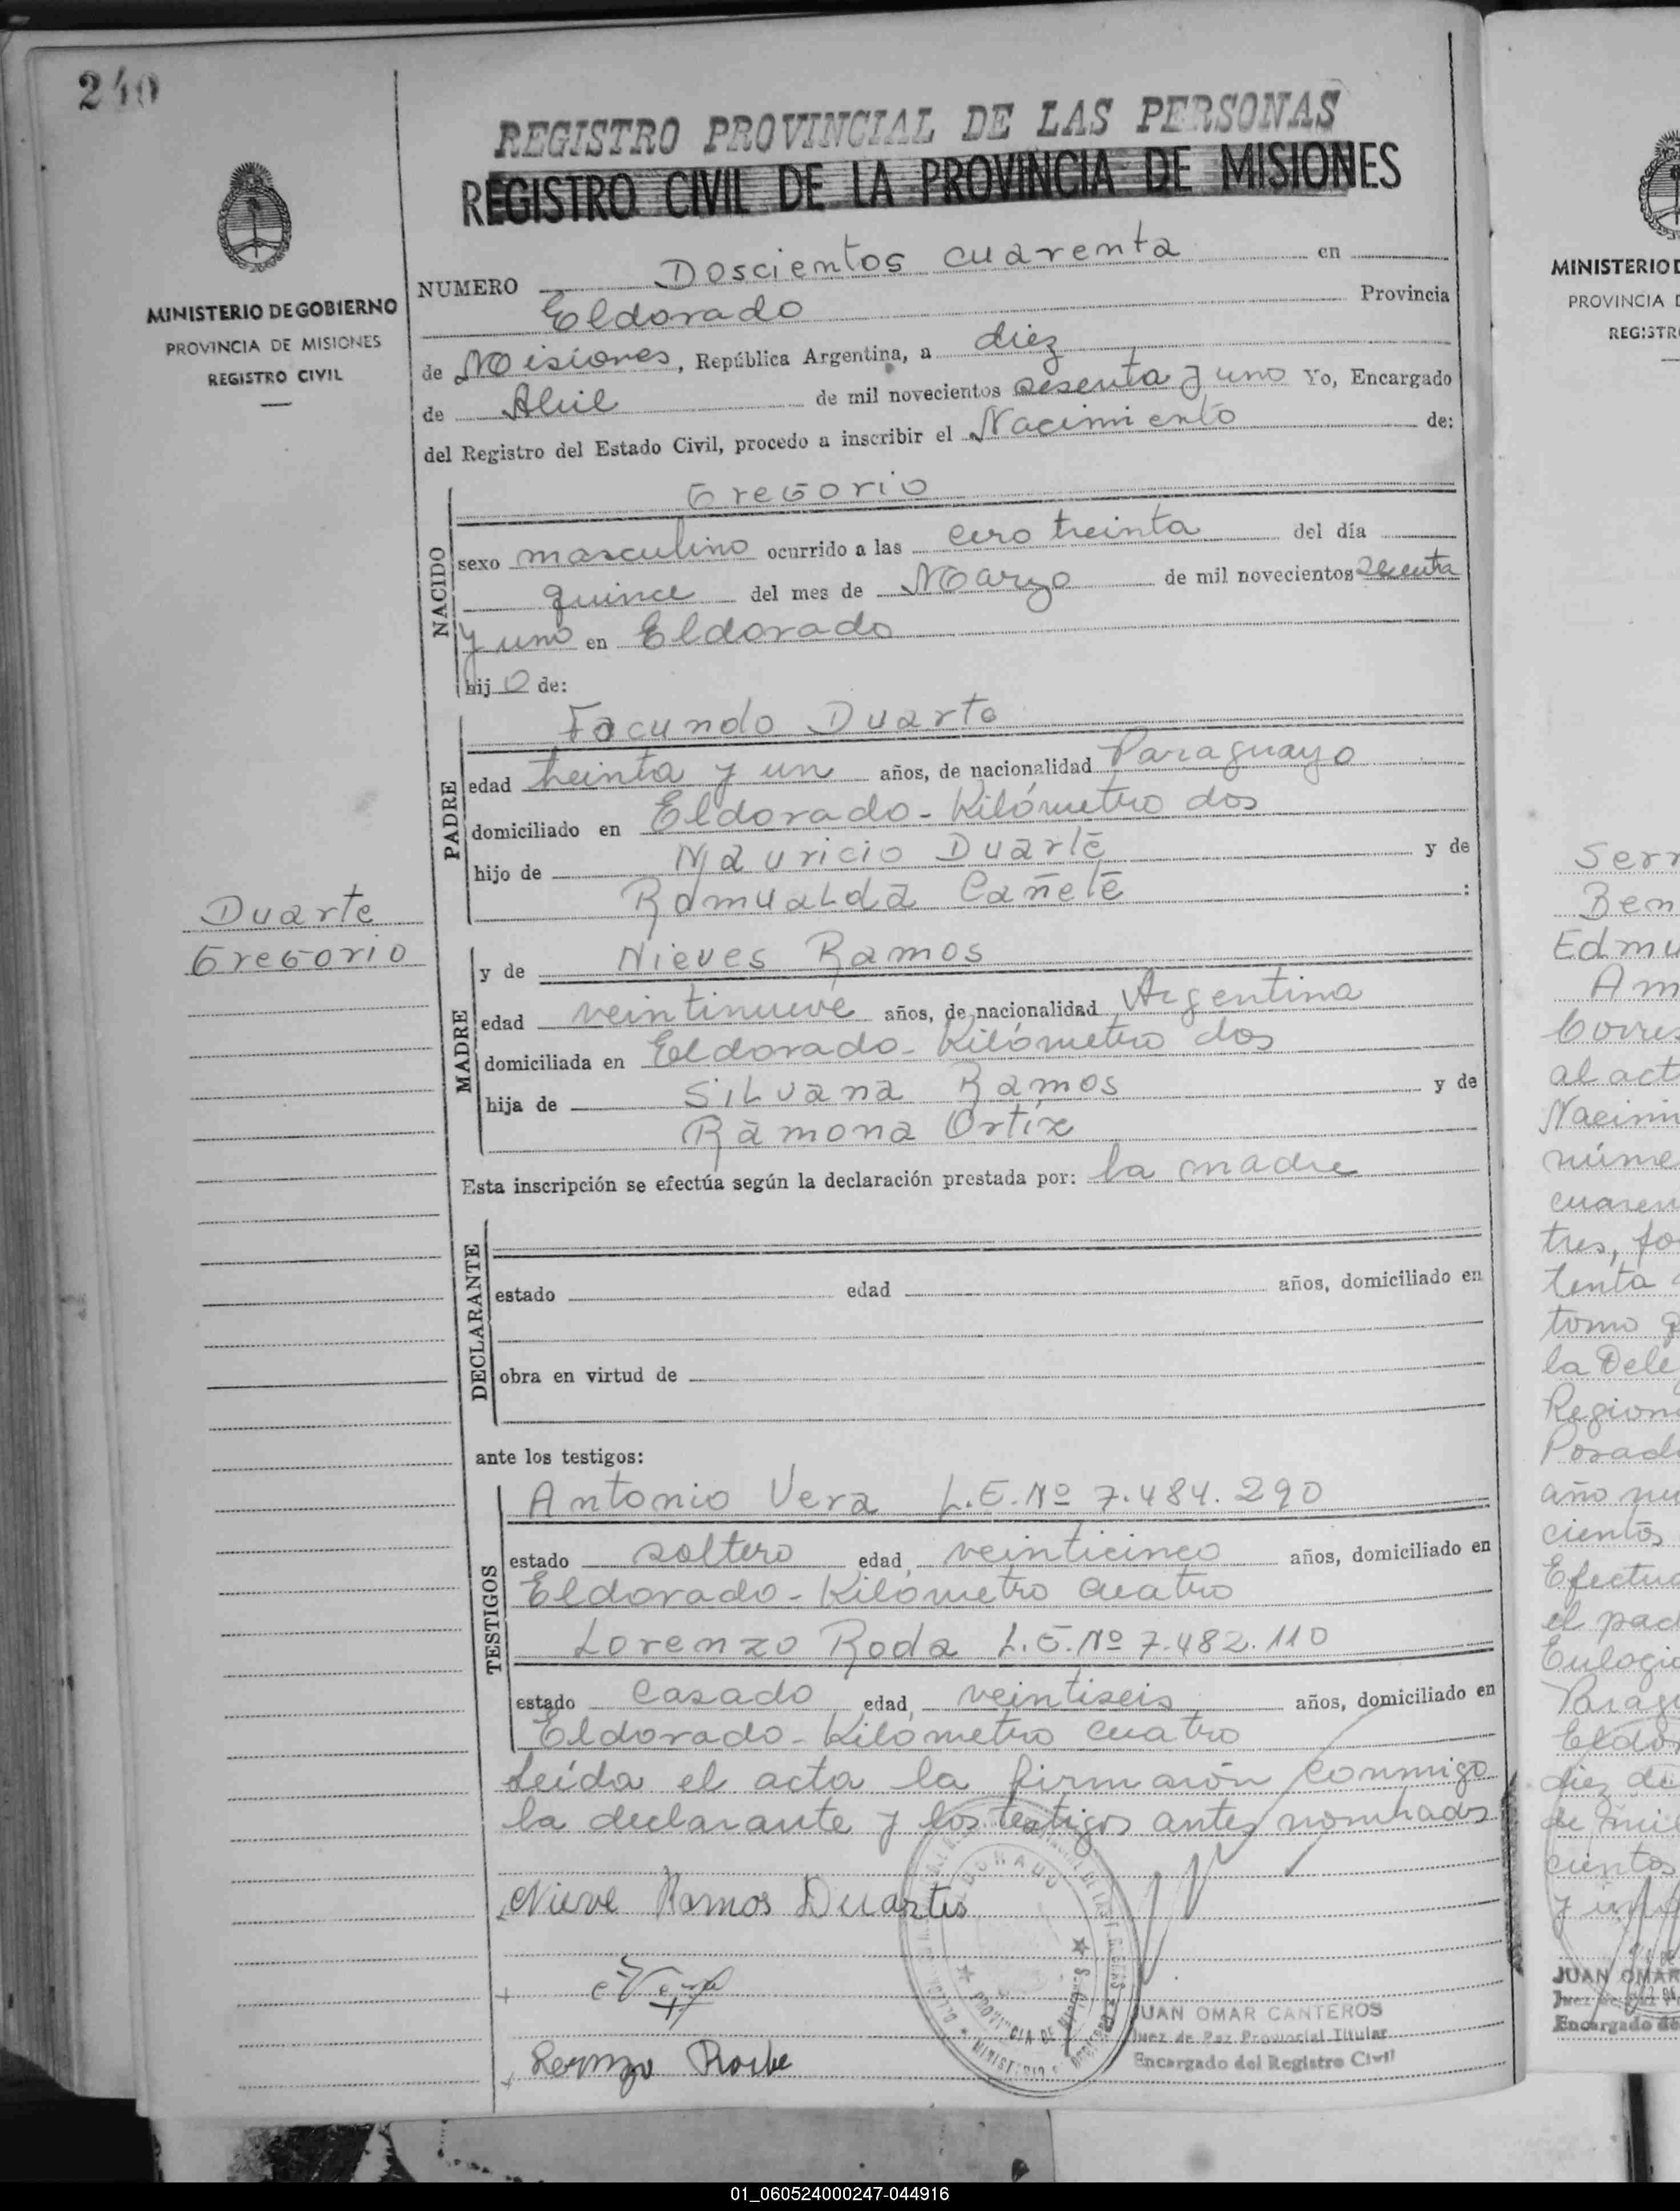 240
REGISTRO PROVINCIAL DE LAS PERSONAS
REGISTRO CIVIL DE LA PROVINCIA DE MISIONES
MINISTERIO DE GOBIERNO
PROVINCIA DE MISIONES
REGISTRO CIVIL
NUMERO Doscientos cuarenta en
Eldorado Provincia
de Misiones, República Argentina, a diez
de Abril de mil novecientos sesenta y uno Yo, Encargado
del Registro del Estado Civil, procedo a inscribir el Nacimiento de:
NACIDO
Gregorio
sexo masculino ocurrido a las cero treinta del día
quince del mes de Marzo de mil novecientos sesenta
y uno en Eldorado
hijo de:
PADRE
Facundo Duarte
edad treinta y un años, de nacionalidad Paraguayo
domiciliado en Eldorado - Kilómetro dos
hijo de Mauricio Duarte y de
Romualda Cañete :
Duarte
Gregorio
MADRE
y de Nieves Ramos
edad veintinueve años, de nacionalidad Argentina
domiciliada en Eldorado - Kilómetro dos
hija de Silvana Ramos y de
Ramona Ortíz
Esta inscripción se efectúa según la declaración prestada por: la madre
DECLARANTE
estado edad años, domiciliado en
obra en virtud de
ante los testigos:
TESTIGOS
Antonio Vera L.E. Nº 7.484.290
estado soltero edad, veinticinco años, domiciliado en
Eldorado - Kilómetro cuatro
Lorenzo Roda L.E. Nº 7.482.110
estado casado edad, veintiseis años, domiciliado en
Eldorado - Kilómetro cuatro
Leída el acta la firmarón conmigo
la declarante y los testigos antes nombrados
Nieve Ramos Duartes
JUAN OMAR CANTEROS
Juez de Paz Provincial Titular
Encargado del Registro Civil
MINISTERIO D
PROVINCIA D
REGISTR
Serr
Ben
Edmu
Am
Corres
al act
Nacim
núme
cuaren
tres, fo
tenta
tomo
la Dele
Region
Posad
año nu
cientos
Efectua
el pad
Eulogio
Parag
Eldor
diez de
de mil
cientos
JUAN OMAR
Encargado de
01_060524000247-044916